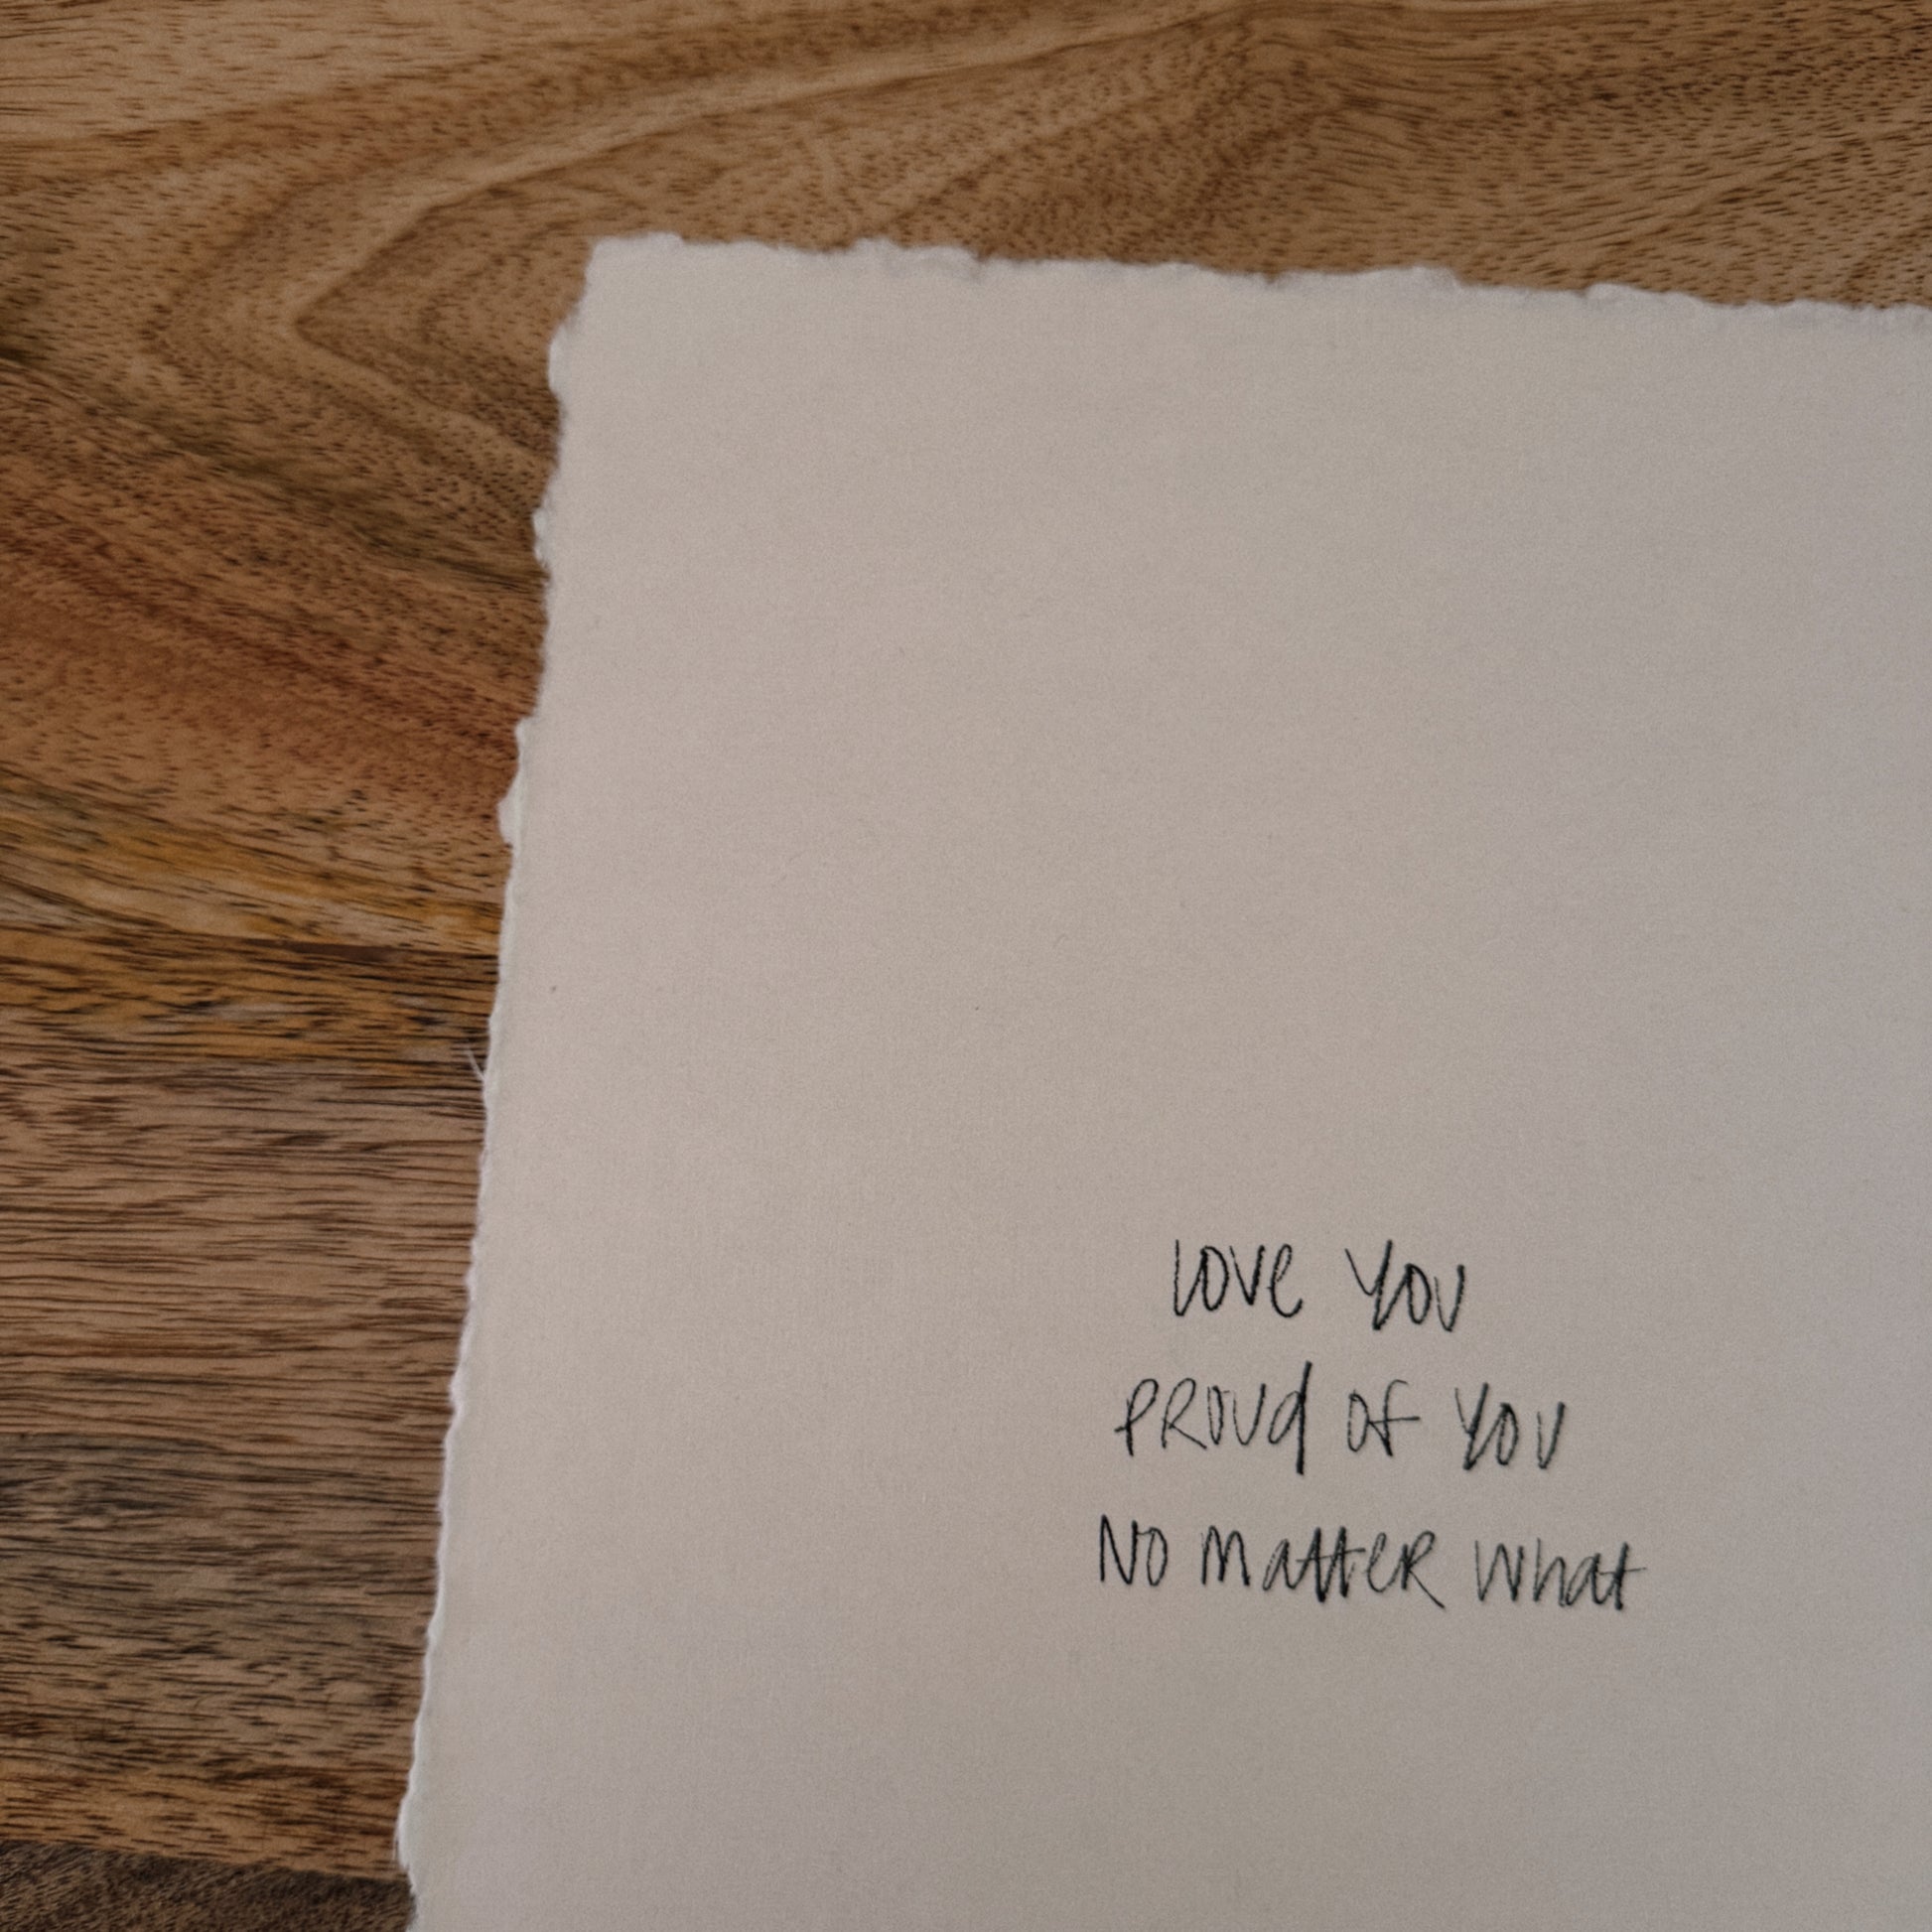 Love You
PROUd of You
No matteR what